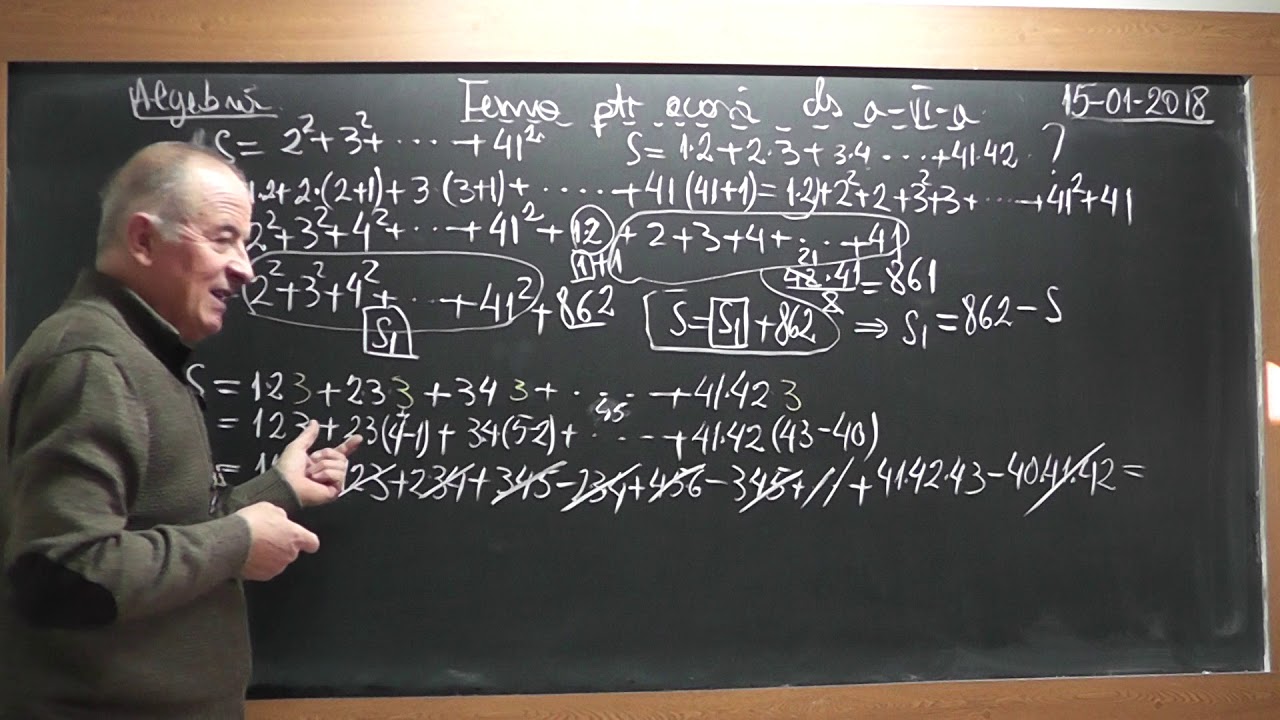 Algebră Temă ptr acasă cls a-VI-a 15-01-2018
S = 2² + 3² + ... + 41² S = 1·2 + 2·3 + 3·4 ... + 41·42 ?
1·2 + 2·(2+1) + 3(3+1) + ...... + 41(41+1) = 1·2) + 2² + 2 + 3² + 3 + ... + 41² + 41
2² + 3² + 4² + ... + 41² + 12 + 2 + 3 + 4 + ... + 41
1+1 21
42·41/2 = 861
2² + 3² + 4² + ... + 41² + 862 S = S₁ + 862 ⇒ S₁ = 862 - S
S₁
S = 123 + 233 + 343 + ... + 41·42 3
= 123 + 23(4-1) + 34(5-2) + ... + 41·42(43-40)
45
= 123 + 234 + 345 - 234 + 456 - 345 + // + 41·42·43 - 40·41·42 =